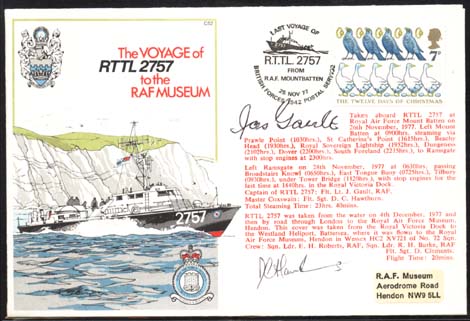 C52
The VOYAGE of
RTTL 2757
to the
RAF MUSEUM
2757
LAST VOYAGE OF
R.T.T.L. 2757
FROM
R.A.F. MOUNTBATTEN
25 NOV 77
BRITISH FORCES 1542 POSTAL SERVICE
7p
THE TWELVE DAYS OF CHRISTMAS
Taken aboard RTTL 2757 at
Royal Air Force Mount Batten on
26th November, 1977. Left Mount
Batten at 0900hrs, steaming via
Prawle Point (1030hrs.), St Catherine's Point (1615hrs.), Beachy
Head (1930hrs.), Royal Sovereign Lightship (1932hrs.), Dungeness
(2102hrs.), Dover (2200hrs.), South Foreland (2215hrs.), to Ramsgate
with stop engines at 2300hrs.
Left Ramsgate on 28th November, 1977 at 0630hrs., passing
Broadstairs Knowl (0650hrs.), East Tongue Buoy (0710hrs.), Tilbury
(0930hrs.), under Tower Bridge (1120hrs.), with stop engines for the
last time at 1640hrs. in the Royal Victoria Dock.
Captain of RTTL 2757: Flt. Lt. J. Gault, RAF.
Master Coxswain: Flt. Sgt. D. C. Hawthorn.
Total Steaming Time: 23hrs. 40mins.
RTTL 2757 was taken from the water on 4th December, 1977 and
then by road through London to the Royal Air Force Museum,
Hendon. This cover was taken from the Royal Victoria Dock to
the Westland Heliport, Battersea, where it was flown to the Royal
Air Force Museum, Hendon in Wessex HC2 XV721 of No. 72 Sqn.
Crew: Sqn. Ldr. E. H. Roberts, RAF, Sqn. Ldr. R. H. Burke, RAF
Flt. Sgt. D. Clements.
Flight Time: 20mins.
R.A.F. Museum
Aerodrome Road
Hendon NW9 5LL